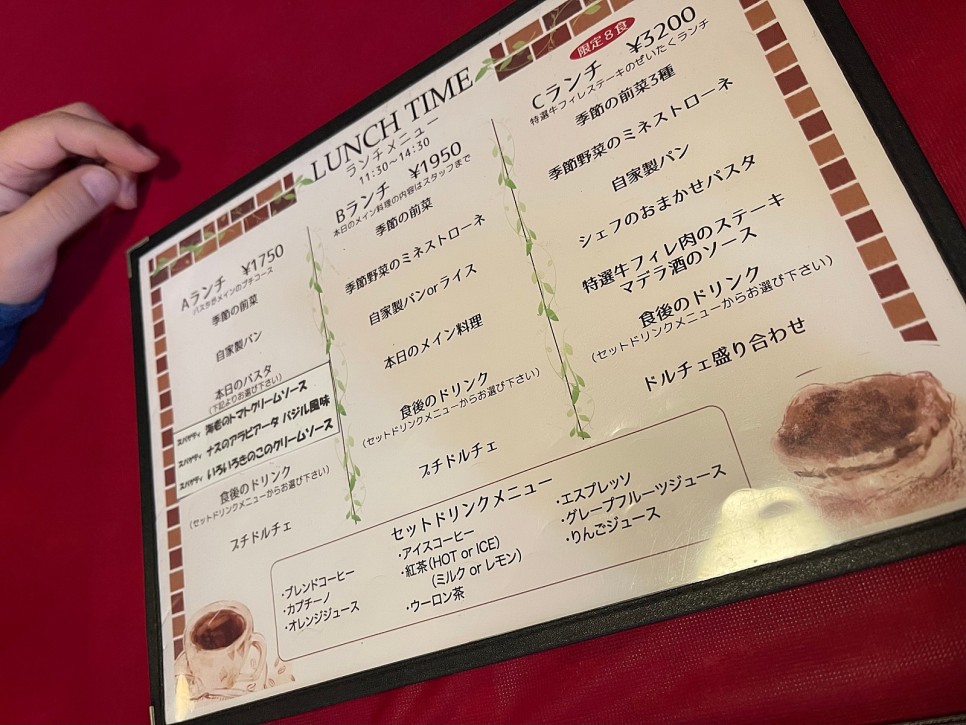 LUNCH TIME
ランチメニュー
11:30～14:30
Aランチ ¥1750
パスタがメインのプチコース
季節の前菜
自家製パン
本日のパスタ
(下記よりお選び下さい)
スパゲティ 海老のトマトクリームソース
スパゲティ ナスのアラビアータ バジル風味
スパゲティ いろいろきのこのクリームソース
食後のドリンク
(セットドリンクメニューからお選び下さい)
プチドルチェ
Bランチ ¥1950
本日のメイン料理の内容はスタッフまで
季節の前菜
季節野菜のミネストローネ
自家製パンorライス
本日のメイン料理
食後のドリンク
(セットドリンクメニューからお選び下さい)
プチドルチェ
限定8食
Cランチ ¥3200
特選牛フィレステーキのぜいたくランチ
季節の前菜3種
季節野菜のミネストローネ
自家製パン
シェフのおまかせパスタ
特選牛フィレ肉のステーキ
マデラ酒のソース
食後のドリンク
(セットドリンクメニューからお選び下さい)
ドルチェ盛り合わせ
セットドリンクメニュー
・ブレンドコーヒー
・カプチーノ
・オレンジジュース
・アイスコーヒー
・紅茶(HOT or ICE)
(ミルク or レモン)
・ウーロン茶
・エスプレッソ
・グレープフルーツジュース
・りんごジュース